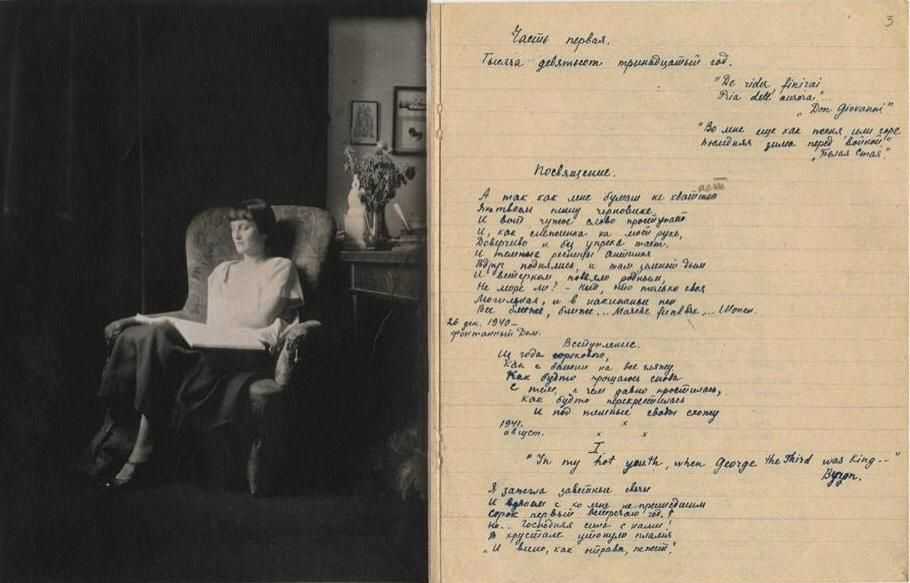 3
Часть первая.
Тысяча девятьсот тринадцатый год.
"Di rider finirai
Pria dell' aurora".
"Don Giovanni"
"Во мне еще как песня или горе
Последняя зима перед войной"
"Белая Стая".
Посвящение.
А так как мне бумаги не хватило
Я на твоем пишу черновике.
И вот чужое слово проступает
И, как снежинка на моей руке,
Доверчиво и без упрека тает.
И темные ресницы Антиноя
Вдруг поднялись, и там зеленый дым
И ветерком повеяло родным,
Не море ли? - Нет, это только хвоя
Могильная, и в накипаньи пен
Все ближе, ближе... Marche funèbre... Шопен.
26 дек. 1940-
Фонтанный Дом.
Вступление.
Из года сорокового,
Как с башни на все гляжу
Как будто прощаюсь снова
С тем, с чем давно простилась,
Как будто перекрестилась
И под темные своды схожу
1941.
август.
x
x x
I
"In my hot youth, when George the Third was King--"
Byron.
Я зажгла заветные свечи
И вдвоем с ко мне не пришедшим
Сорок первый встречаю год.
Но.. Господняя сила с нами!
В хрустале утонуло пламя
"И вино, как отрава, жжет".